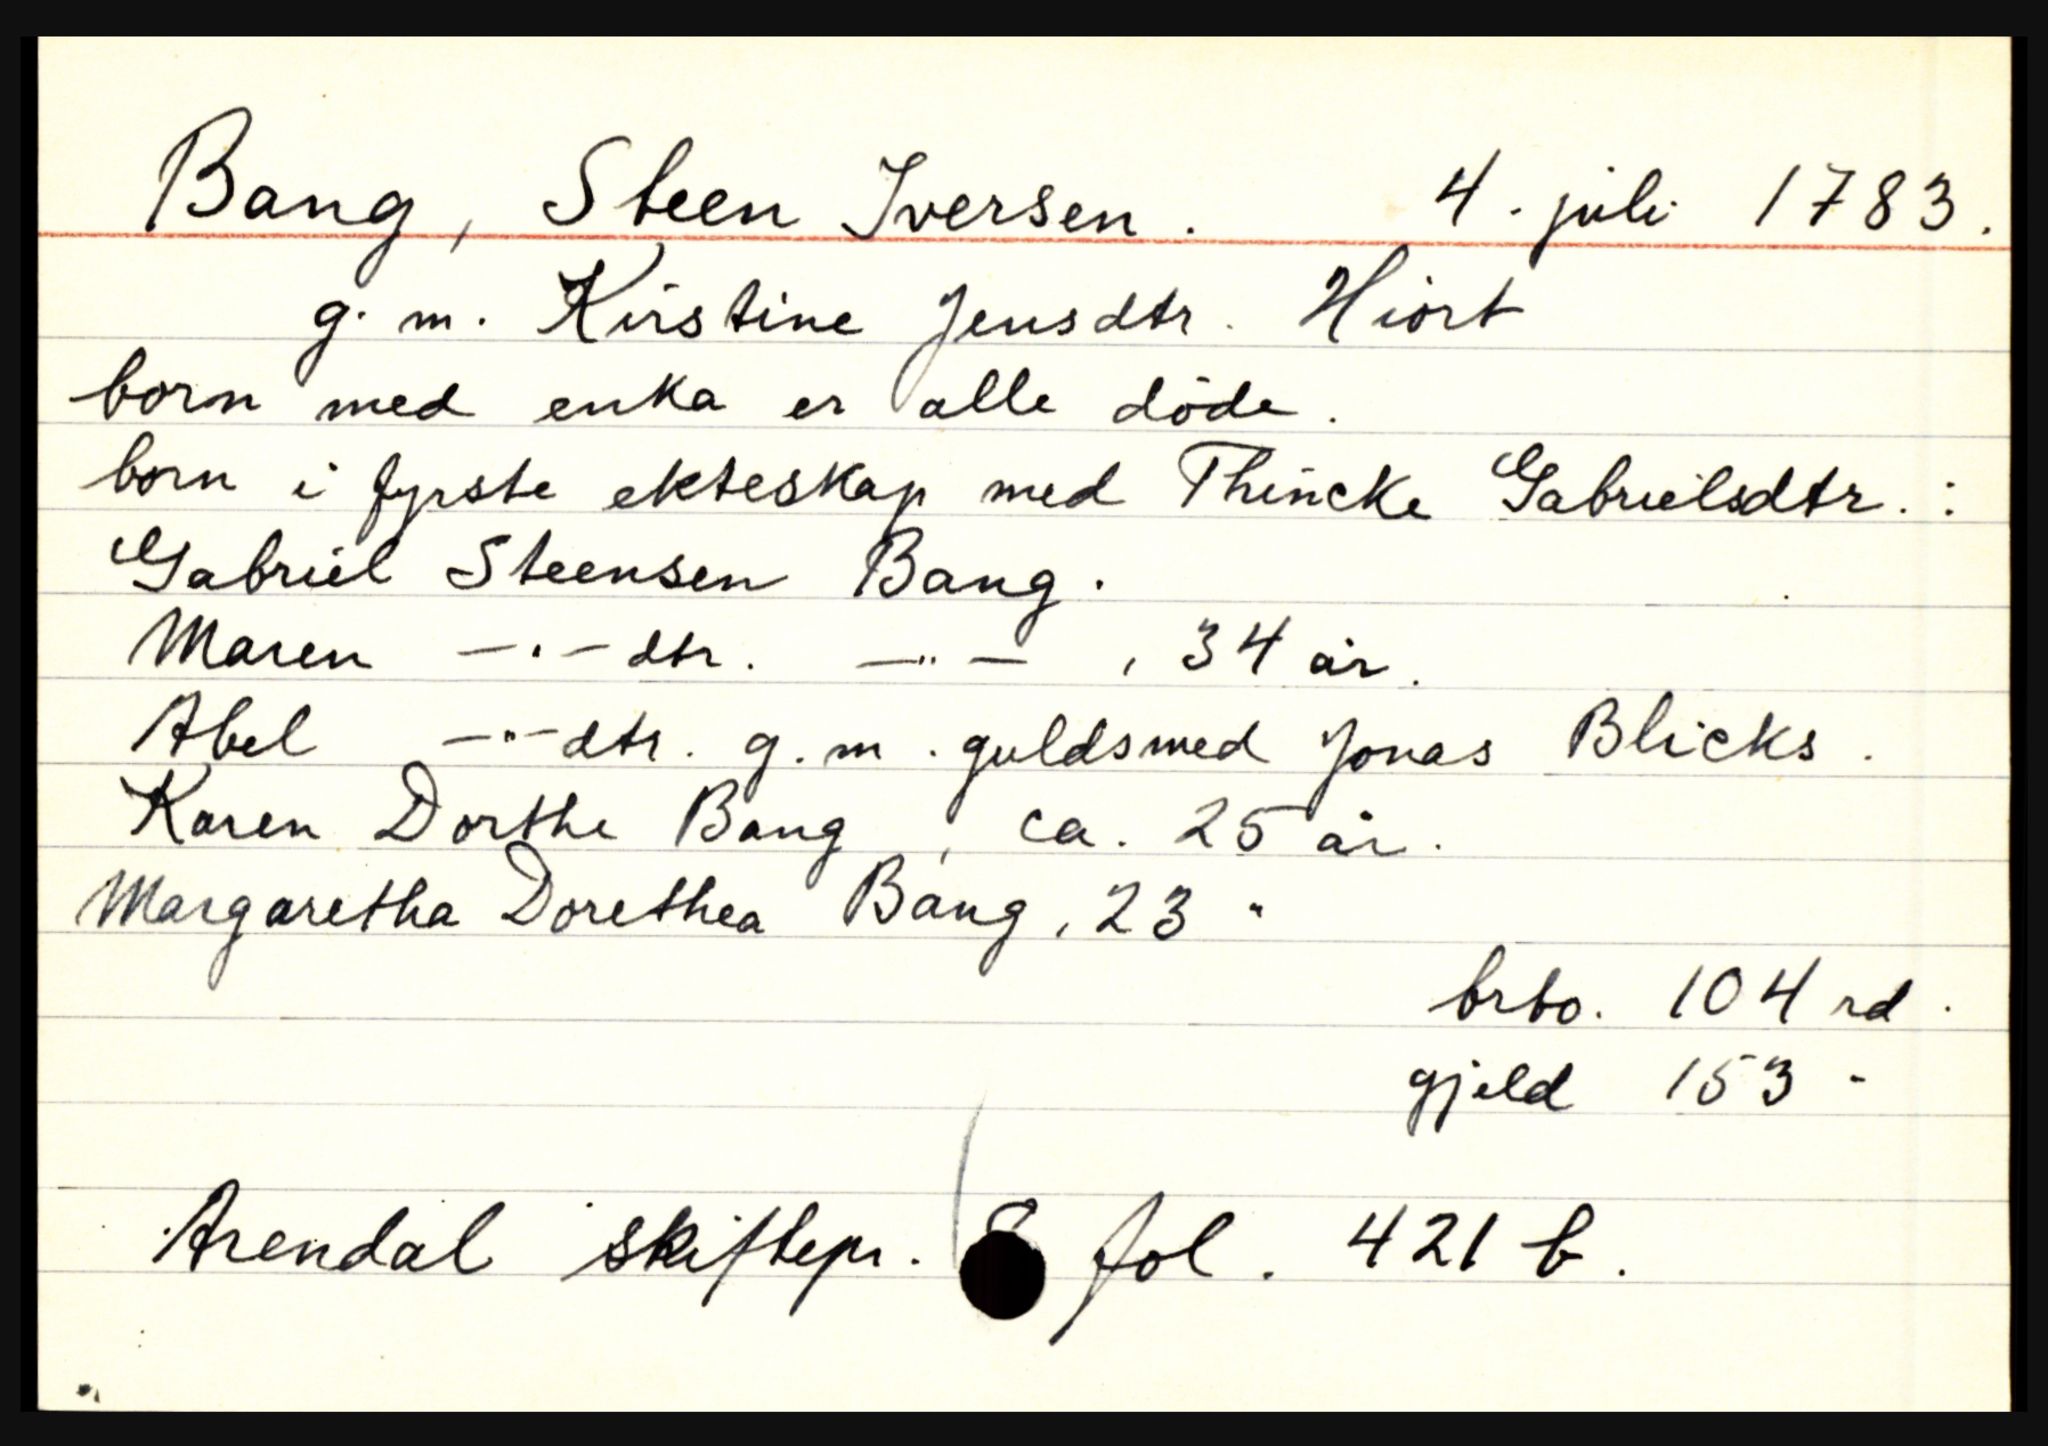 Bang, Steen Iversen. 4. juli 1783.
g. m. Kirstine Jensdtr. Hiort
born med enka er alle døde.
born i fyrste ekteskap med Thincke Gabrielsdtr. :
Gabriel Steensen Bang.
Maren —"— dtr. —"— , 34 år.
Abel —"— dtr. g. m. guldsmed Jonas Blicks.
Karen Dorthe Bang, ca. 25 år.
Margaretha Dorethea Bang, 23 "
brto. 104 rd.
gjeld 153 -
Arendal skiftepr. 8 fol. 421 b.